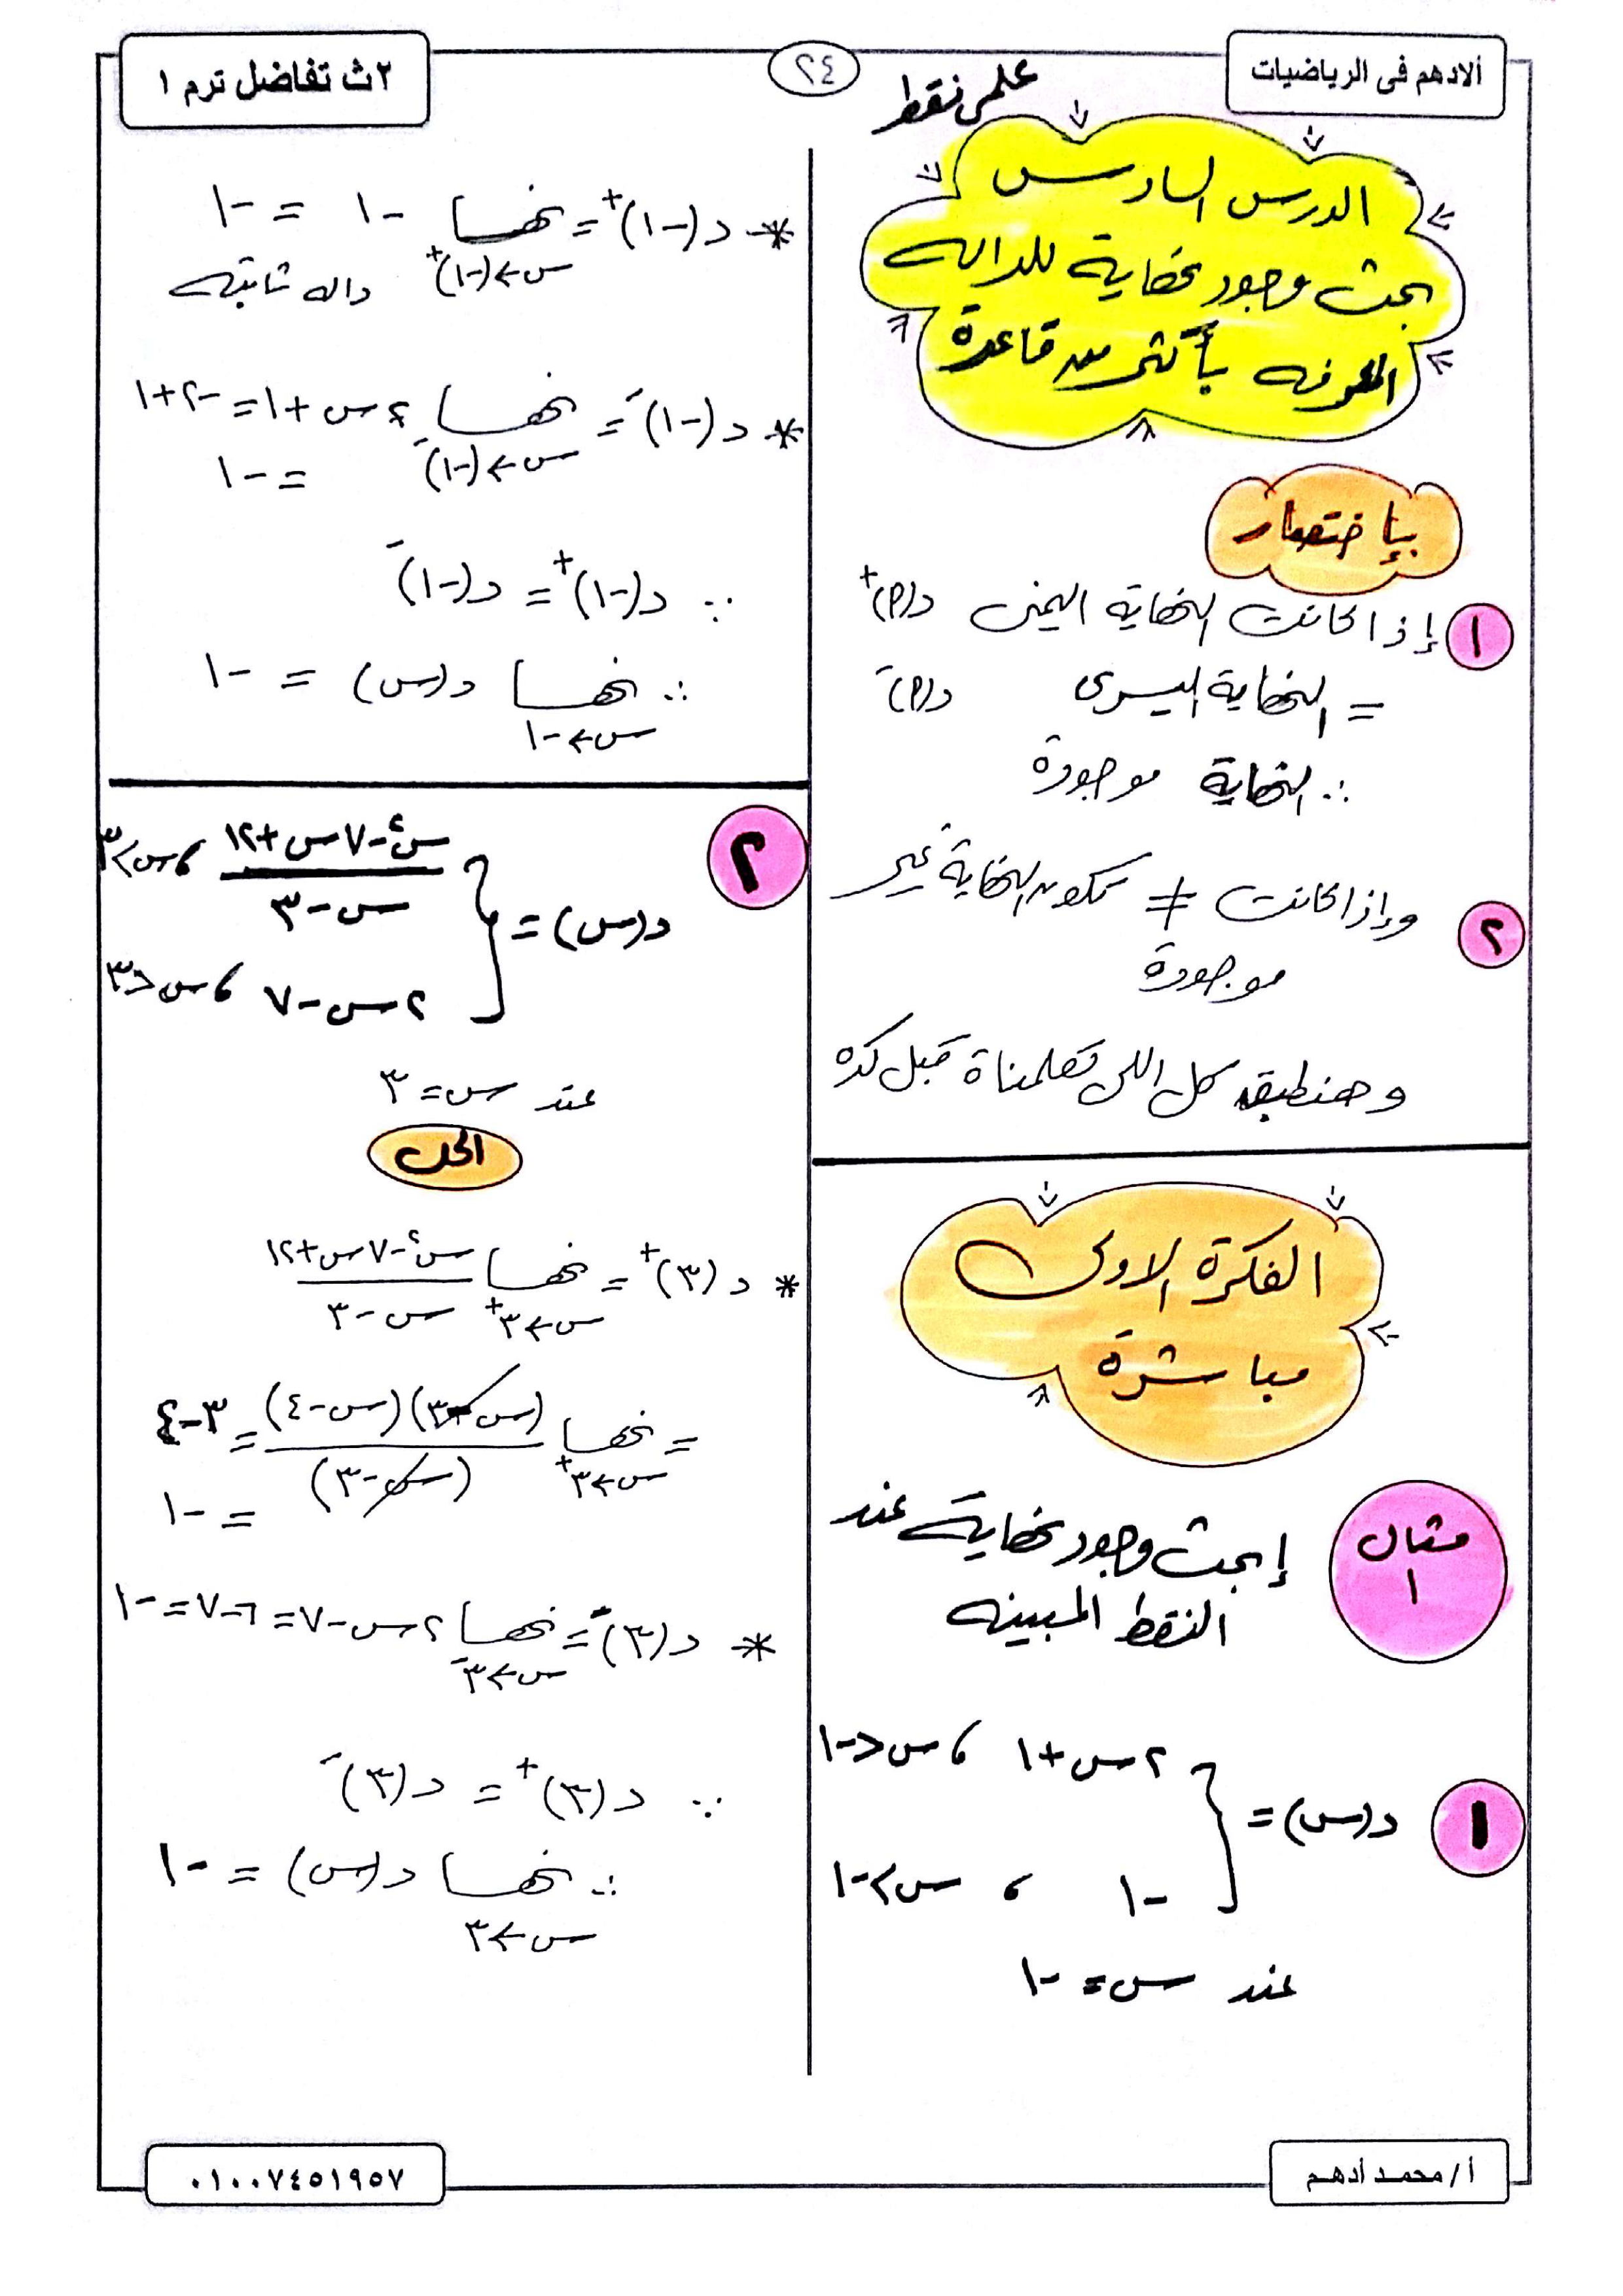 ألادهم فى الرياضيات
٢٤
٢ث تفاضل ترم ١
علمى فقط
الدرس السادس
بحث وجود نهاية للداله
المعرفه بأكثر من قاعدة
بإختصار
١ إذا كانت النهاية اليمنى د(٢)+
= النهاية اليسرى د(٢)-
∴ النهاية موجودة
٢ وإذا كانت ≠ تكون النهاية غير
موجودة
وهنطبق كل اللى تعلمناة قبل كده
الفكرة الاولى
مباشرة
مثال ١
إبحث وجود نهاية عند
النقط المبينه
١ د(س) = { ٢س + ١ ، س < -١
-١ ، س > -١
عند س = -١
* د(-١)+ = نهـــا -١ = -١
س←(-١)+
داله ثابته
* د(-١)- = نهـــا ٢س + ١ = -٢ + ١
س←(-١)-
= -١
∵ د(-١)+ = د(-١)-
∴ نهـــا د(س) = -١
س←-١
٢ د(س) = { (س٢ - ٧س + ١٢)/(س - ٣) ، س > ٣
٢س - ٧ ، س < ٣
عند س = ٣
الحل
* د(٣)+ = نهـــا (س٢ - ٧س + ١٢)/(س - ٣)
س←٣+
= نهـــا (س - ٣)(س - ٤)/(س - ٣) = ٣ - ٤
س←٣+
= -١
* د(٣)- = نهـــا ٢س - ٧ = ٦ - ٧ = -١
س←٣-
∵ د(٣)+ = د(٣)-
∴ نهـــا د(س) = -١
س←٣
أ / محمد أدهم
٠١٠٠٧٤٥١٩٥٧